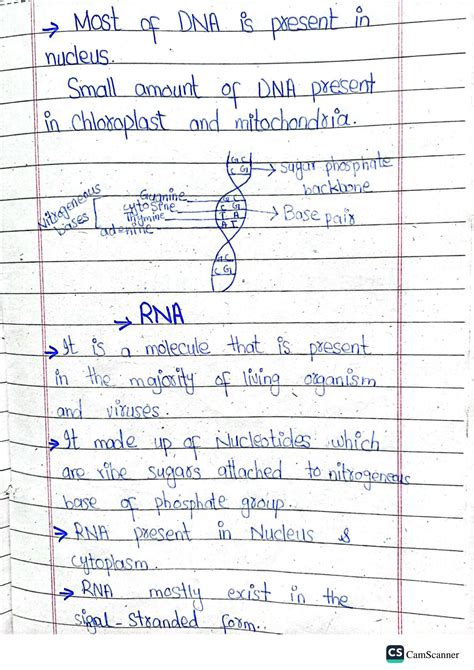 → Most of DNA is present in
nucleus.
Small amount of DNA present
in chloroplast and mitochondria.
G C
C G
→ Sugar phosphate
backbone
Nitrogeneous
bases
Guanine
cytosine
thymine
adenine
G C
C G
T A
A T
→ Base pair
G C
C G
→ RNA
→ It is a molecule that is present
in the majority of living organism
and viruses.
→ It made up of Nucleotides which
are ribe sugars attached to nitrogeneous
base of phosphate group.
→ RNA present in Nucleus &
cytoplasm.
→ RNA mostly exist in the
sigal-stranded form..
CS CamScanner